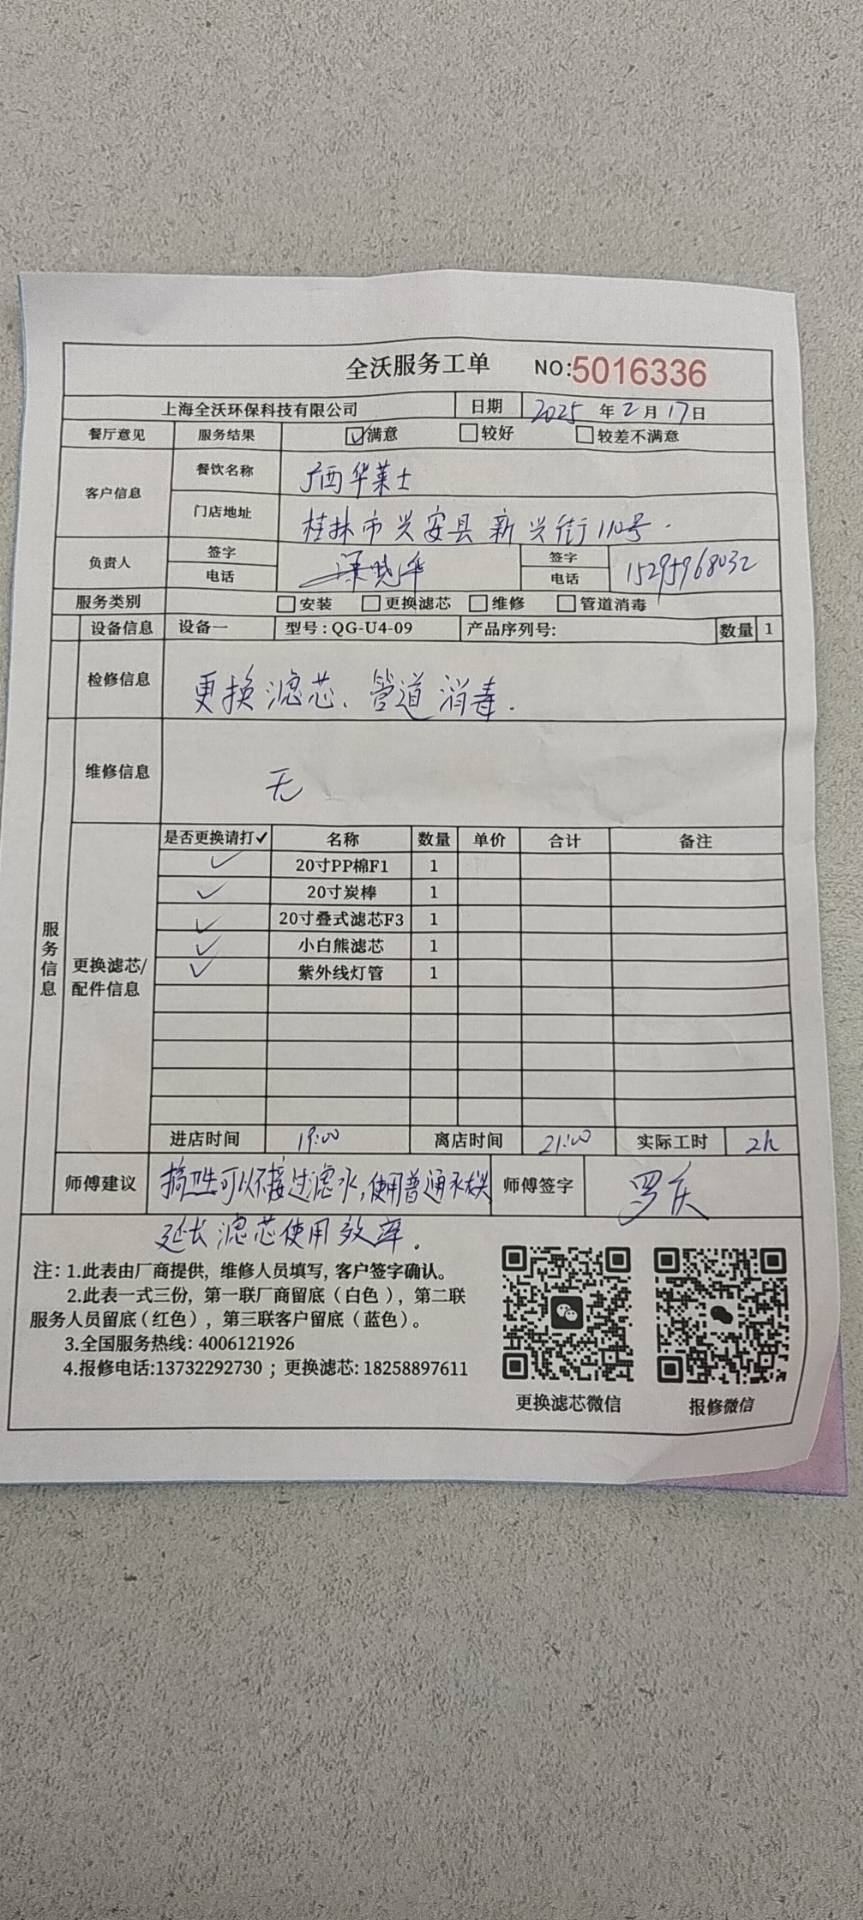 全沃服务工单 NO:5016336
上海全沃环保科技有限公司 日期 2025 年 2 月 17 日
餐厅意见 服务结果 ☑满意 □较好 □较差不满意
客户信息 餐饮名称 广西华莱士
门店地址 桂林市兴安县新兴街110号.
负责人 签字 电话 梁晓华 签字 电话 15295968032
服务类别 □安装 □更换滤芯 □维修 □管道消毒
设备信息 设备一 型号:QG-U4-09 产品序列号: 数量 1
检修信息 更换滤芯、管道消毒.
维修信息 无
服务信息
更换滤芯/配件信息
是否更换请打✓ 名称 数量 单价 合计 备注
✓ 20寸PP棉F1 1
✓ 20寸炭棒 1
✓ 20寸叠式滤芯F3 1
✓ 小白熊滤芯 1
✓ 紫外线灯管 1
进店时间 19:00 离店时间 21:00 实际工时 2h
师傅建议 搞卫生可以不接过滤水,使用普通水 师傅签字 罗庆
延长滤芯使用效率.
注: 1.此表由厂商提供, 维修人员填写, 客户签字确认。
2.此表一式三份, 第一联厂商留底(白色), 第二联
服务人员留底(红色), 第三联客户留底(蓝色)。
3.全国服务热线: 4006121926
4.报修电话:13732292730 ; 更换滤芯: 18258897611
更换滤芯微信 报修微信